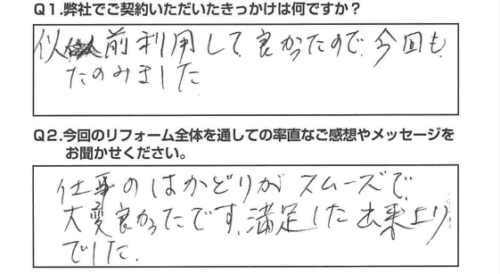 Q1.弊社でご契約いただいたきっかけは何ですか？
似前利用して、良かったので、今回も、
たのみました
Q2.今回のリフォーム全体を通しての率直なご感想やメッセージを
お聞かせください。
仕事のはかどりが スムーズで、
大変良かったです、満足した出来上り
でした.